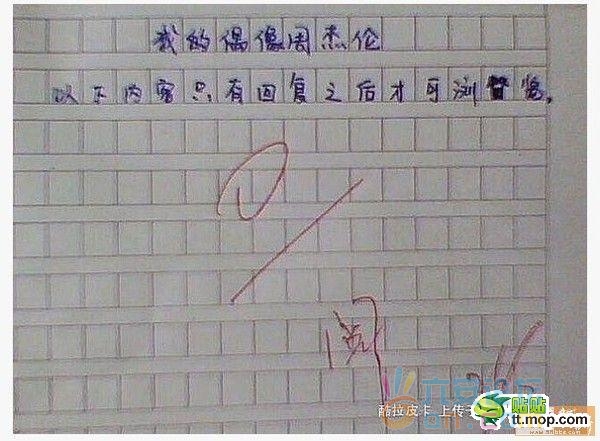 我的偶像周杰伦
以下内容只有回复之后才可浏览。
0
阅
酷拉皮卡 上传
贴贴
tt.mop.com